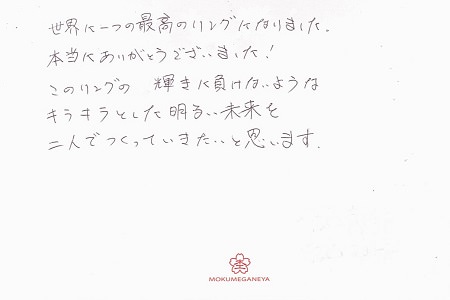 世界に一つの最高のリングになりました。
本当にありがとうございました!
このリングの 輝きに負けないような
キラキラとした明るい未来を
二人でつくっていきたいと思います。
MOKUMEGANEYA